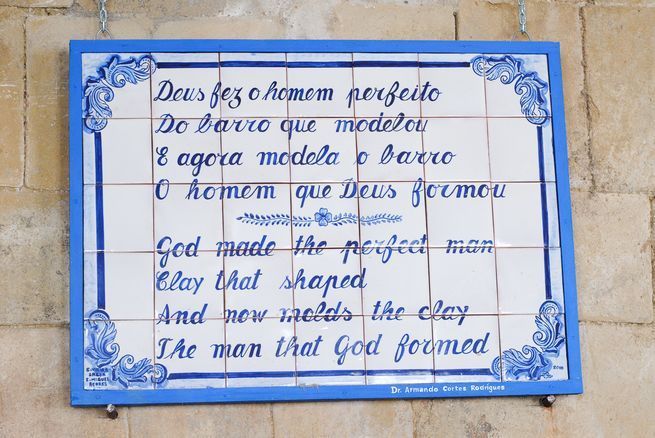 Deus fez o homem perfeito
Do barro que modelou
E agora modela o barro
O homem que Deus formou
God made the perfect man
Clay that shaped
And now molds the clay
The man that God formed
S. MIGUEL
AÇORES
Dr. Armando Cortes Rodrigues